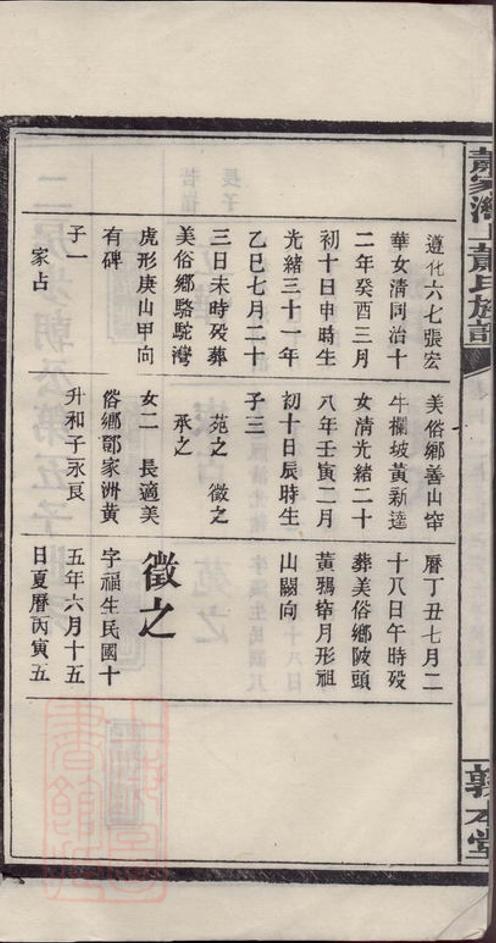 蕭氏族譜
遵化六七張宏
華女清同治十
二年癸酉三月
初十日申時生
光緒三十一年
乙巳七月二十
三日未時歿葬
美俗鄉駱駝灣
虎形庚山甲向
有碑
子一
家占
美俗鄉善山窂
牛欄坡黃新逵
女清光緒二十
八年壬寅二月
初十日辰時生
子三
苑之 徵之
承之
女二 長適美
俗鄉鄧家洲黃
升和子永良
曆丁丑七月二
十八日午時歿
葬美俗鄉陂頭
黃鴉窂月形祖
山闗向
徵之
字福生民國十
五年六月十五
日夏曆丙寅五
敦本堂